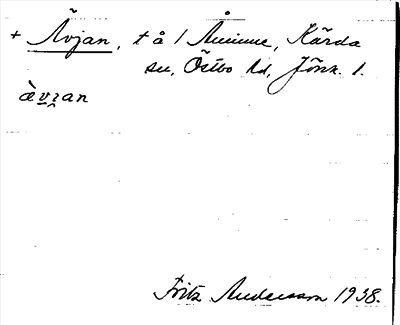 + Ävjan, t å i Åminne, Kärda
sn, Östbo hd, Jönk. l.
àv̯ɪan
Fritz Andersson 1938.